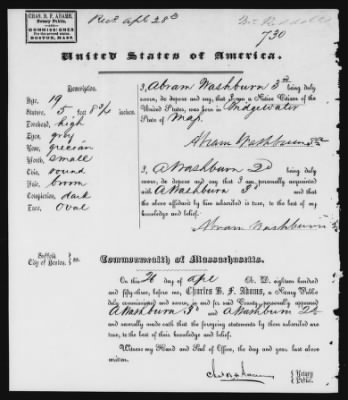 CHAS. B. F. ADAMS,
Notary Public,
COMMISSIONER
BOSTON, MASS.
Recd Apl 28th
730
United States of America.
Description.
Age, 19
Stature, 5 feet 8 3/4 inches.
Forehead, high
Eyes, grey
Nose, grecian
Mouth, small
Chin, round
Hair, brown
Complexion, dark
Face, Oval
I, Abram Washburn 3rd being duly
sworn, do depose and say, that I am a Native Citizen of the
United States, was born in Bridgewater
State of Mass.
Abram Washburn 3rd
I, A Washburn 2d being duly
sworn, do depose and say that I am personally acquainted
with A Washburn 3d and that
the above affidavit by him subscribed is true, to the best of my
knowledge and belief.
Abram Washburn
Suffolk
City of Boston. ss.
Commonwealth of Massachusetts.
On this 26 day of Apl A. D. eighteen hundred
and fifty-three, before me, Charles B. F. Adams, a Notary Public
duly commissioned and sworn, in and for said County, personally appeared
A Washburn 3d and A Washburn 2d
and severally made oath that the foregoing statements by them subscribed are
true, to the best of their knowledge and belief.
Witness my Hand and Seal of Office, the day and year last above
written.
Notary
Public.